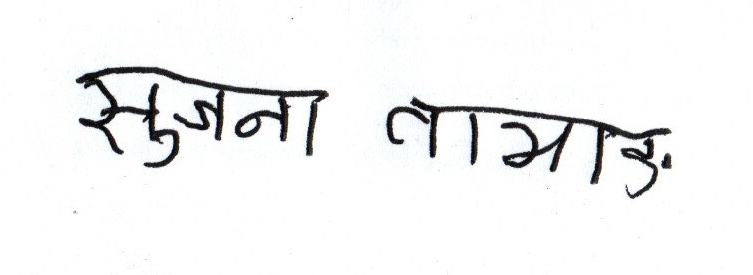 सुजना तामाङ